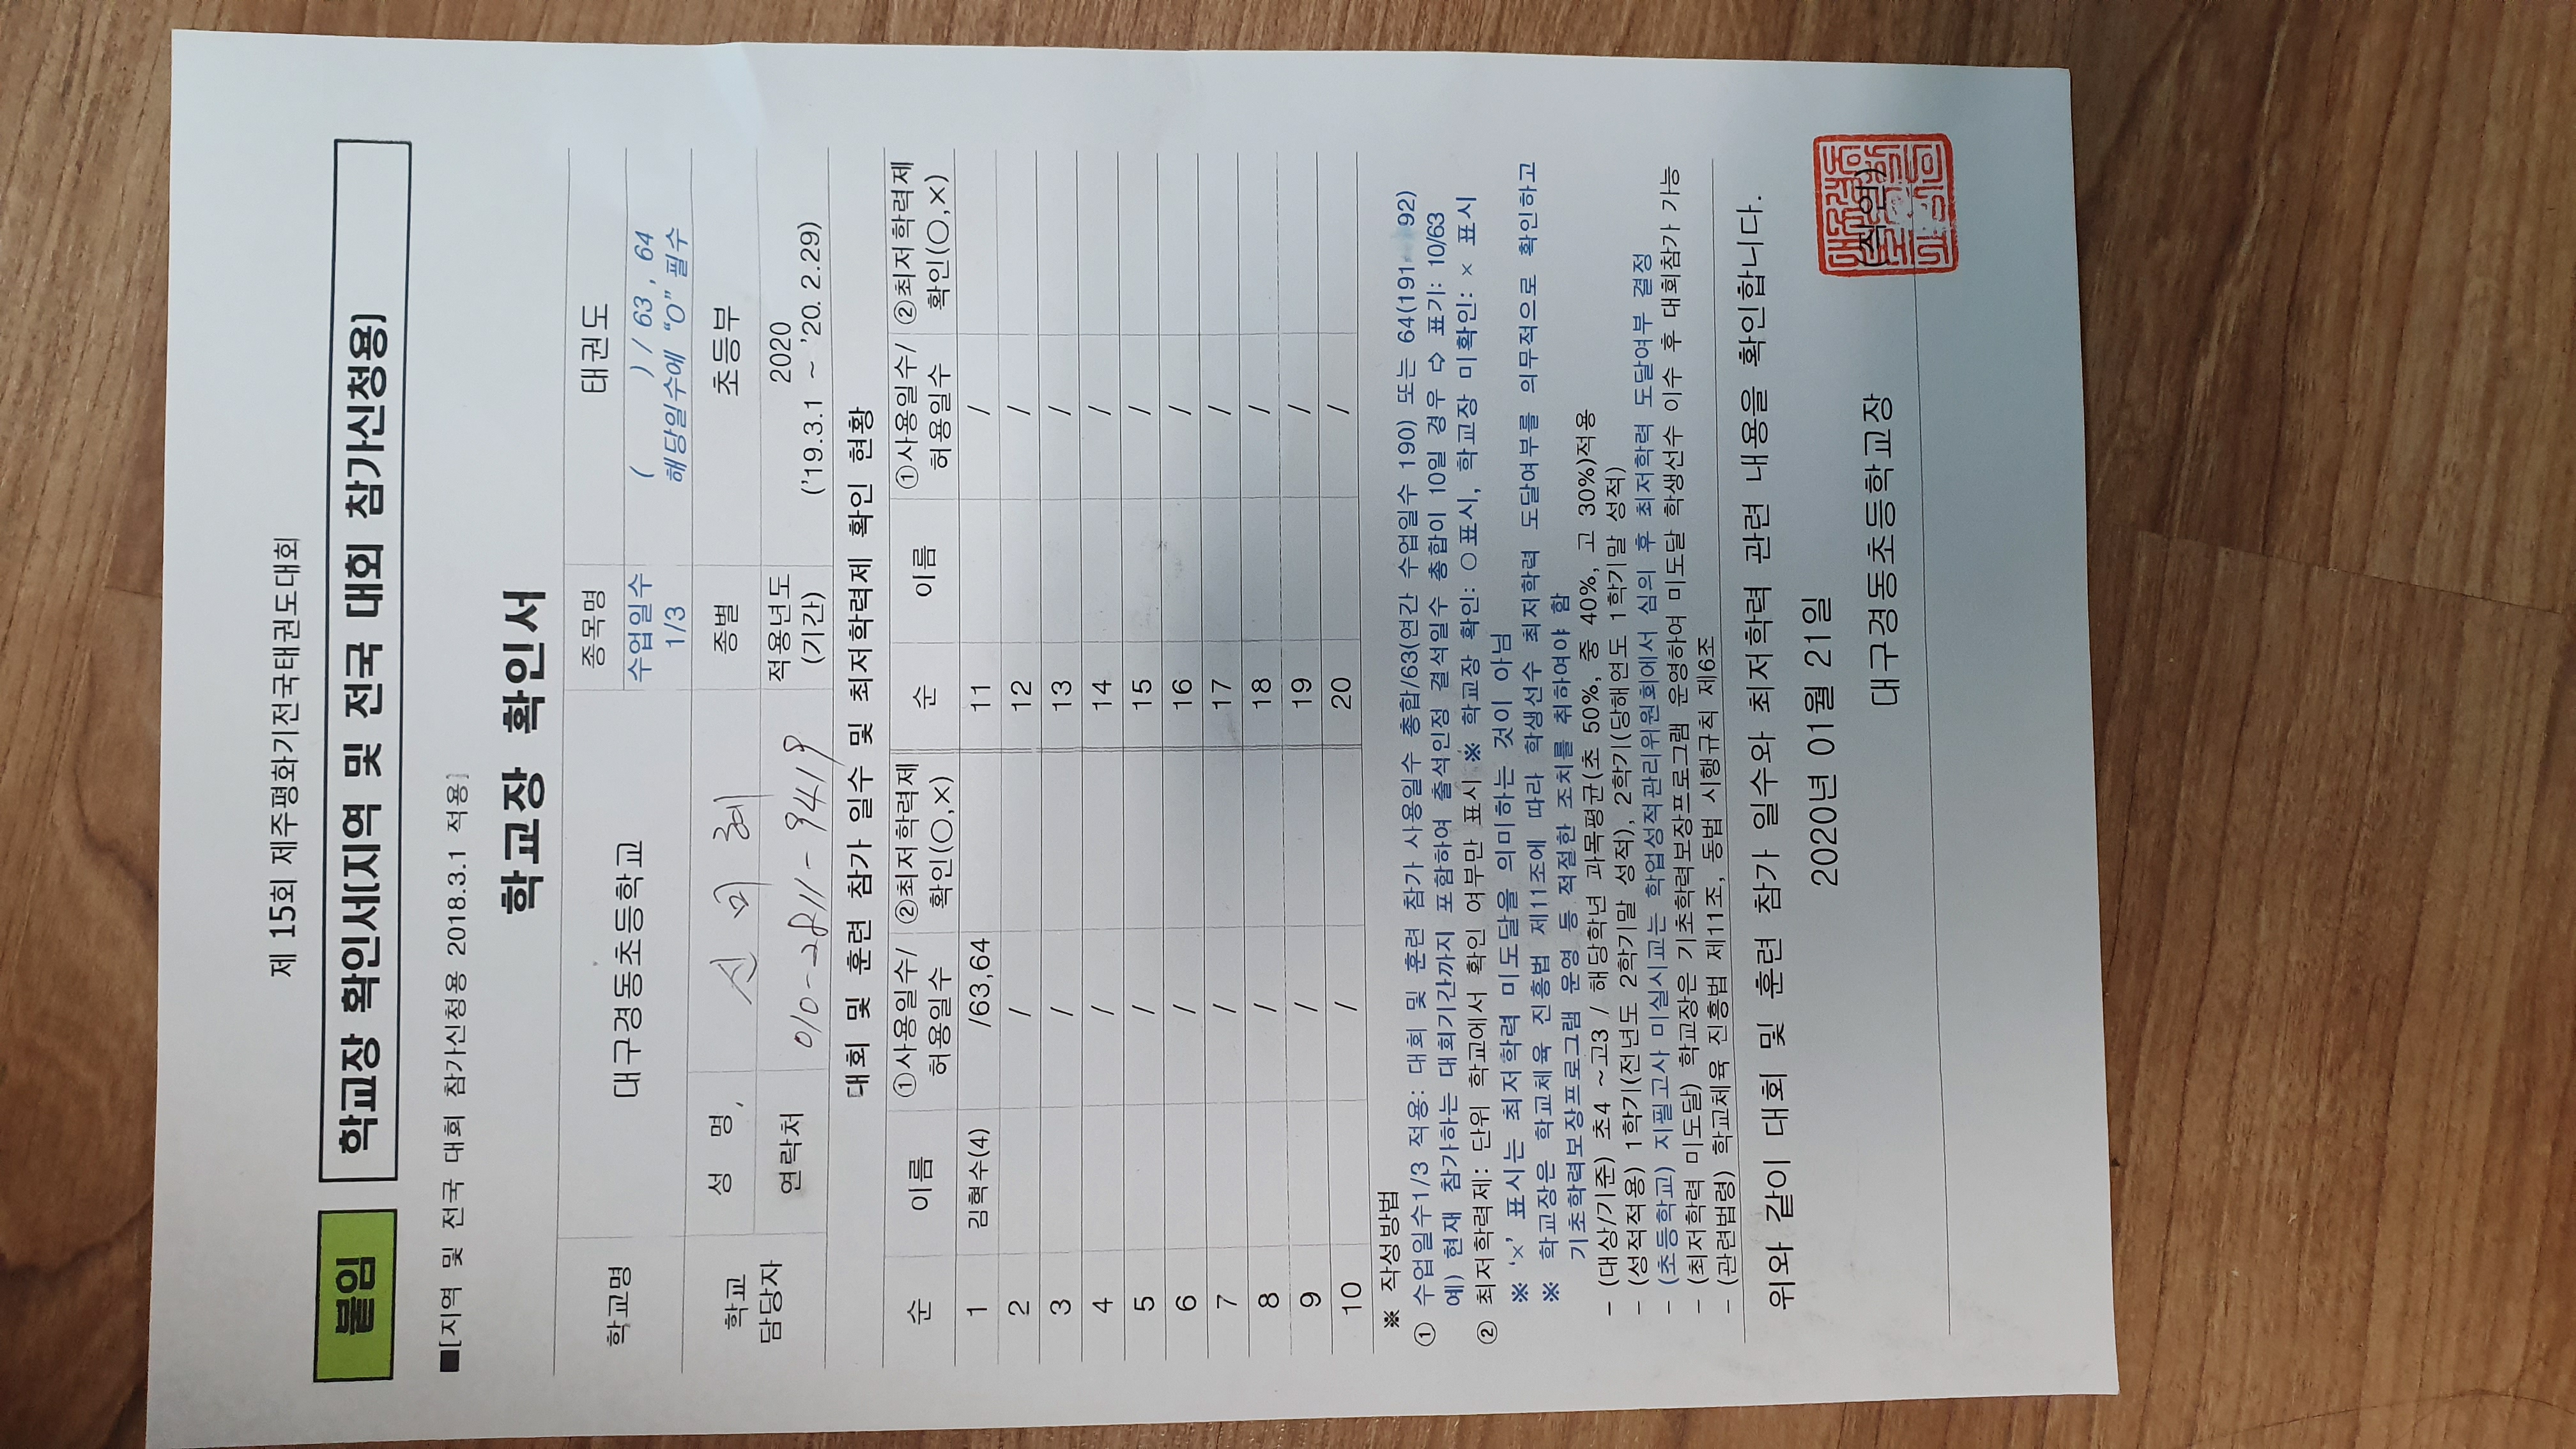 제 15회 제주평화기전국태권도대회
붙임 학교장 확인서[지역 및 전국 대회 참가신청용]
■[지역 및 전국 대회 참가신청용 2018.3.1 적용]
학교장 확인서
학교명 대구경동초등학교 종목명 태권도
수업일수 1/3 ( ) / 63 , 64
해당일수에 "O" 필수
학교 담당자 성 명 신미혜 종별 초등부
연락처 010-2811-9419 적용년도 (기간) 2020
('19.3.1 ~ '20. 2.29)
대회 및 훈련 참가 일수 및 최저학력제 확인 현황
순 이름 ①사용일수/허용일수 ②최저학력제 확인(○,×) 순 이름 ①사용일수/허용일수 ②최저학력제 확인(○,×)
1 김혁수(4) /63,64 11 /
2 / 12 /
3 / 13 /
4 / 14 /
5 / 15 /
6 / 16 /
7 / 17 /
8 / 18 /
9 / 19 /
10 / 20 /
※ 작성방법
① 수업일수1/3 적용: 대회 및 훈련 참가 사용일수 총합/63(연간 수업일수 190) 또는 64(191 92)
예) 현재 참가하는 대회기간까지 포함하여 출석인정 결석일수 총합이 10일 경우 ⇨ 표기: 10/63
② 최저학력제: 단위 학교에서 확인 여부만 표시 ※ 학교장 확인: ○표시, 학교장 미확인: × 표시
※ '×' 표시는 최저학력 미도달을 의미하는 것이 아님
※ 학교장은 학교체육 진흥법 제11조에 따라 학생선수 최저학력 도달여부를 의무적으로 확인하고
기초학력보장프로그램 운영 등 적절한 조치를 취하여야 함
- (대상/기준) 초4 ~고3 / 해당학년 과목평균(초 50%, 중 40%, 고 30%)적용
- (성적적용) 1학기(전년도 2학기말 성적), 2학기(당해연도 1학기말 성적)
- (초등학교) 지필고사 미실시교는 학업성적관리위원회에서 심의 후 최저학력 도달여부 결정
- (최저학력 미도달) 학교장은 기초학력보장프로그램 운영하여 미도달 학생선수 이수 후 대회참가 가능
- (관련법령) 학교체육 진흥법 제11조, 동법 시행규칙 제6조
위와 같이 대회 및 훈련 참가 일수와 최저학력 관련 내용을 확인합니다.
2020년 01월 21일
대구경동초등학교장 (직인)